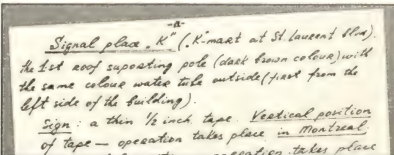 -11-
Signal place „K" („K"-mart at St. Laurent Blvd).
the 1st roof suposting pole (dark brown colour) with
the same colour water tube outside (first from the
left side of the building).
Sign: a thin 1/2 inch tape. Vertical position
of tape — operation takes place in Montreal
operation takes place